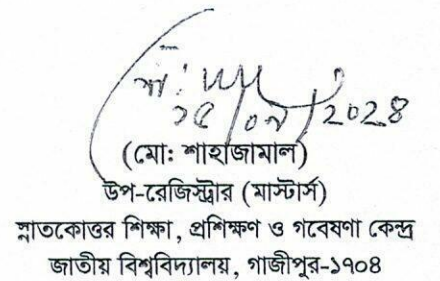 ২৫/০৭/২০২৪
(মো: শাহাজামাল)
উপ-রেজিস্ট্রার (মাস্টার্স)
স্নাতকোত্তর শিক্ষা, প্রশিক্ষণ ও গবেষণা কেন্দ্র
জাতীয় বিশ্ববিদ্যালয়, গাজীপুর-১৭০৪